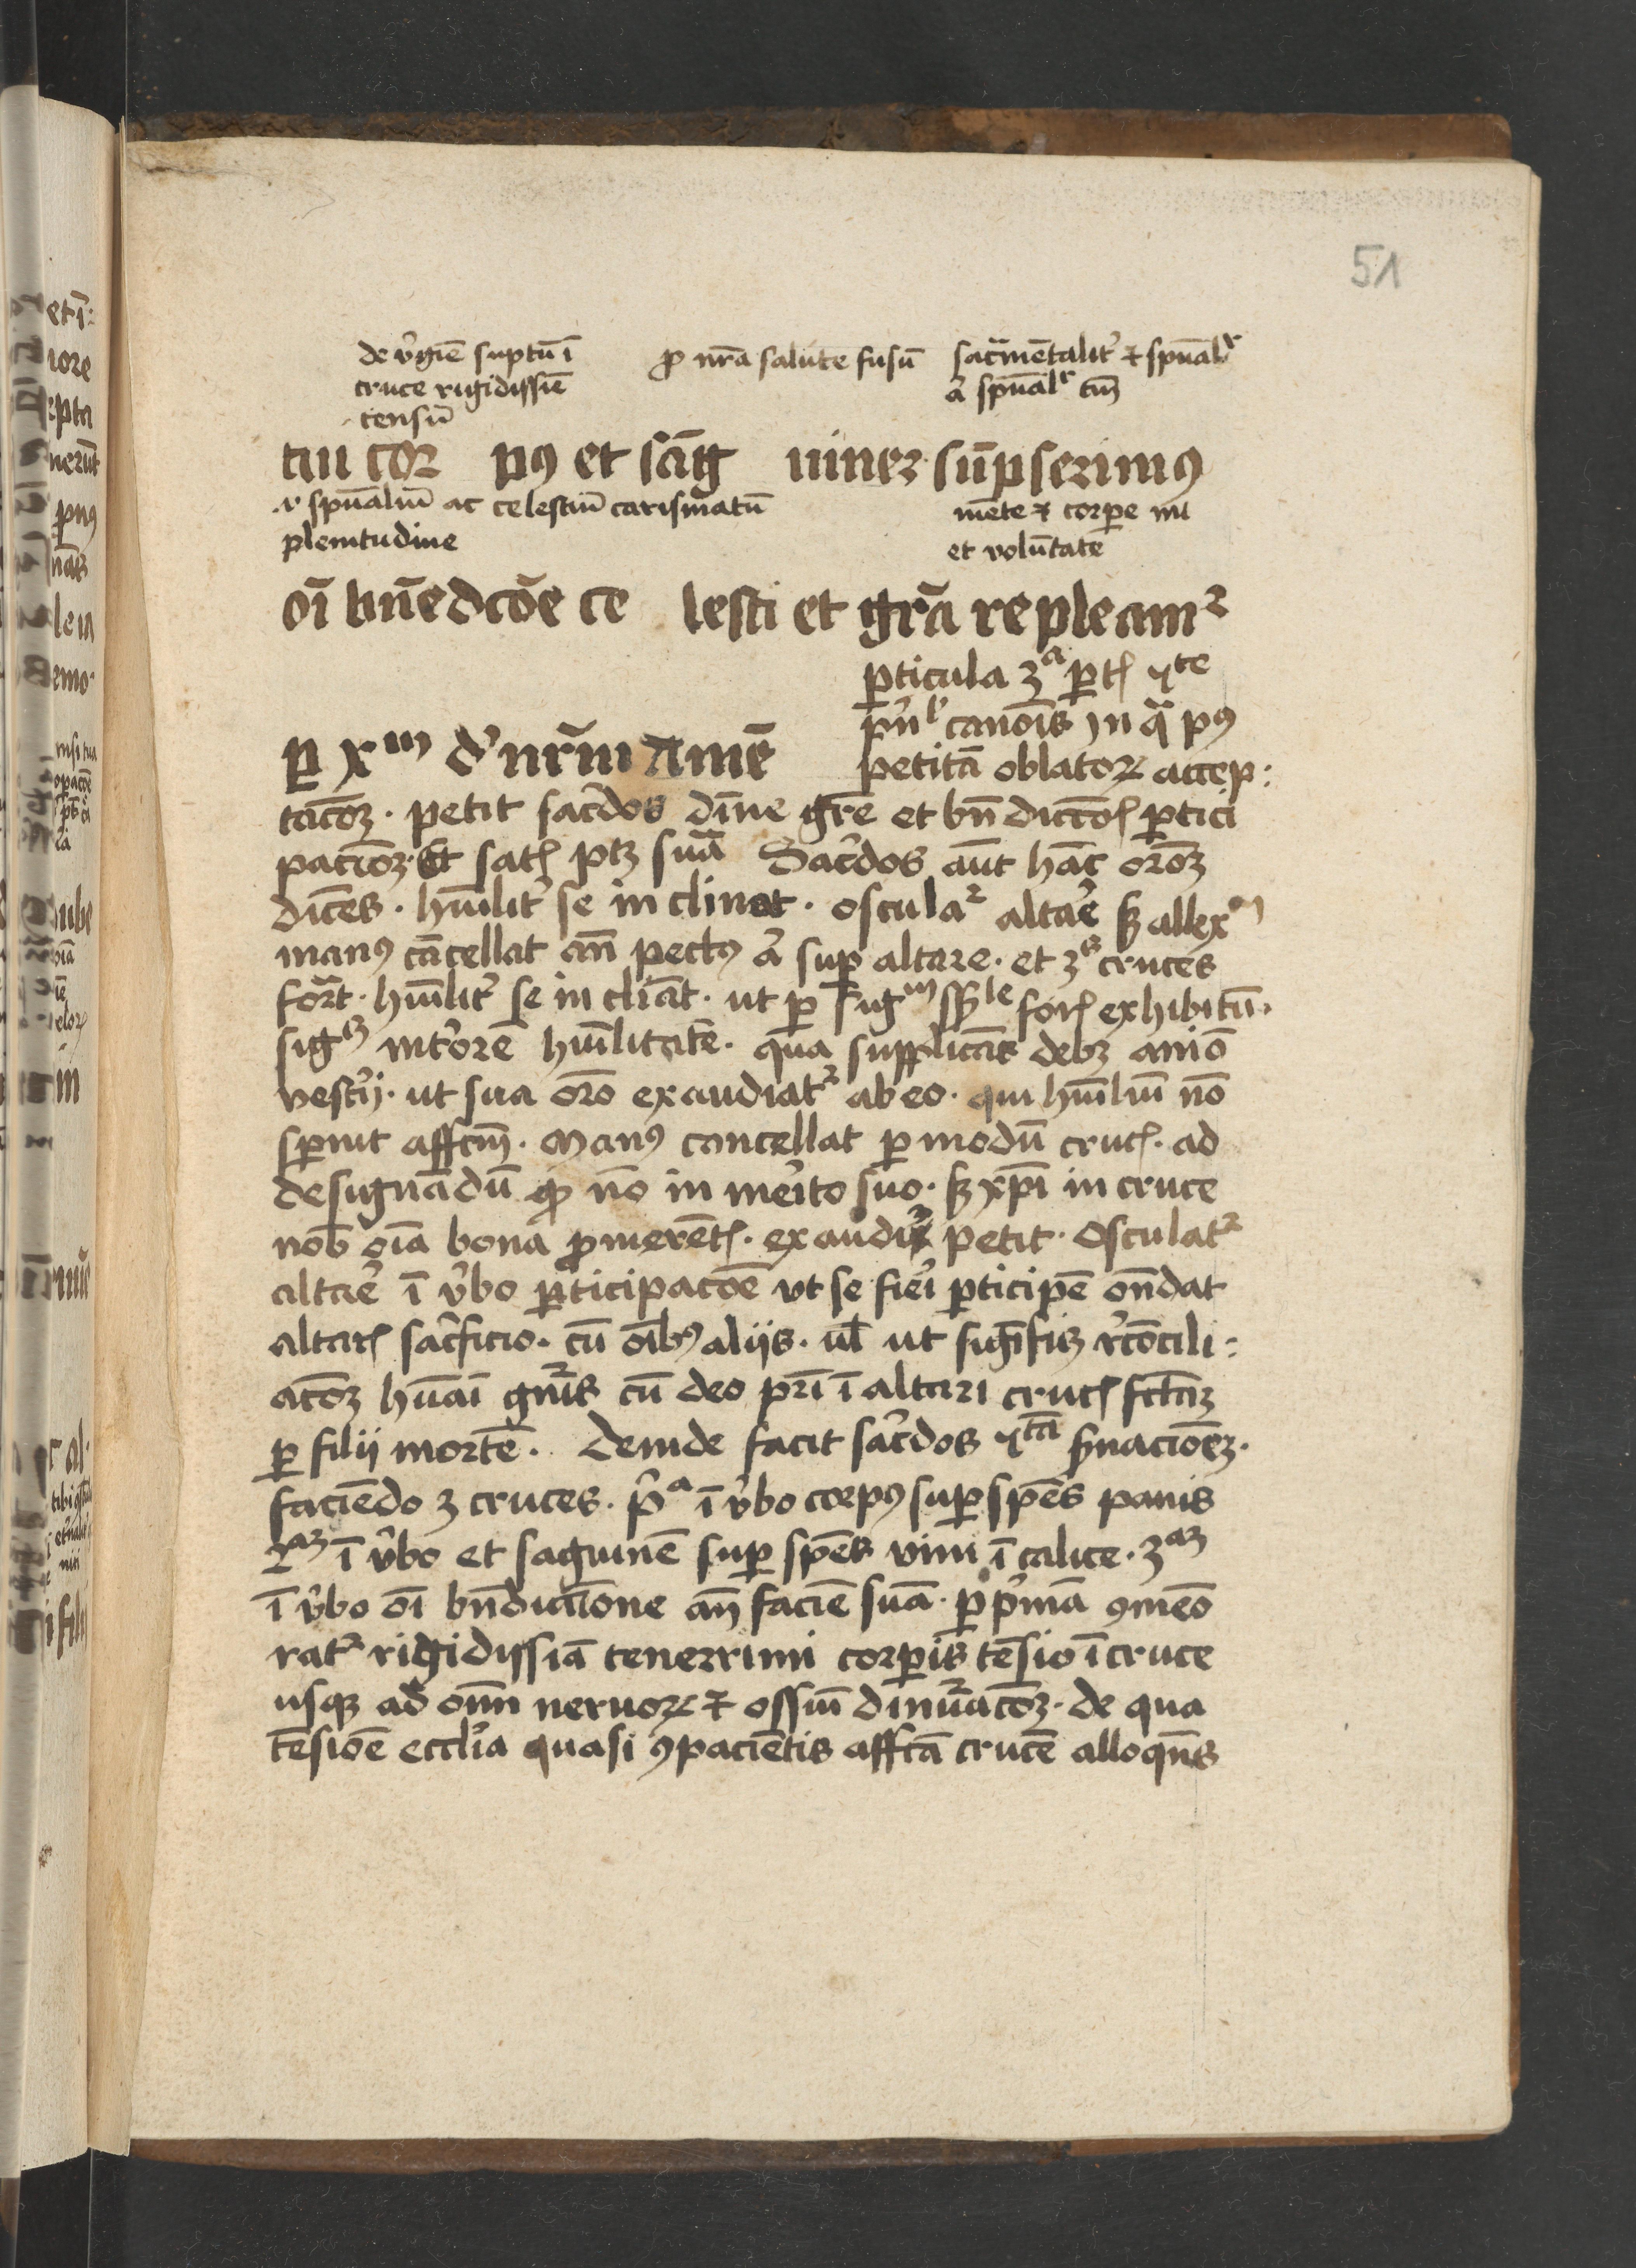 51
de v̓gīe suptū ī
cruce rigidissīe
tensū
ꝓ nr̄a salute fusū
sacͣmētalit̓ ⁊ spūalr̓
a̓ spūalr̓ tm̄
tui cor pꝰ et sāg uinez sūpserimꝰ
spūaliū ac celestiū carismatū
plenitudine
mēte ⁊ corꝑe
et volūtate
oī bn̄edcōe ce lesti et gr̄a repleam²
ꝑticula 3ᵃ ꝑtꝭ 4te
canōis in qͣ pꝰ
ꝑ xᵐ d̓ nr̄m amē petitā oblatoꝝ accep:
tacōꝫ · petit sac̓dos dīne gr̄e et bn̄dictōꝭ ꝑtici
pacōꝫ · Et satꝭ ptꝫ suͣ Sac̓dos aūt hāc oŕōꝫ
dices · hūilit̓ se inclinat · oscula² alta̓e ſꝫ allexᵐ
manꝰ cācellat an̄ pectꝰ a̓ suꝑ altare · et 3ˢ cruces
forͣt · hūilit̓ se incliāt · ut ꝑ sigᵐ forꝭ exhibitū ·
sigᵗ int̓orē hūilitatē · qua supplicās debꝫ aniō
vestiͥ · ut sua orō exaudiat² ab eo · qui hūiliū nō
sꝑnit affcm̄ · Manꝰ cancellat ꝑ modū crucꝭ · ad
designādū ꝙ nō in me̓ito suo · ſꝫ xp̄i in cruce
nob̄ oīa bona ꝓmerētꝭ · exaudiͥ petit · Osculat²
alta̓e ī v̓bo ꝑticipacōe ut se fie̓i ꝑticipē on̄dat
altarꝭ sac̓ficio · cū oībꝰ aliis · ul̄ ut sigīficꝫ r̓cōcili:
acōꝫ hūai gn̓is cū deo pr̄i ī altari crucꝭ fctāꝫ
ꝑ filii mortē · Deinde facit sac̓dos 4tā s̓nacioēꝫ ·
faciēdo 3 cruces · p̓ᵃ ī v̓bo corpꝰ suꝑ spēs panis
2ᵃꝫ ī v̓bo et sāguinē suꝑ spēs vini ī calice · 3ᵃꝫ
ī v̓bo oī bn̄dictione an̄ faciē suā · ꝑ pͥmā ꝯmēo
rat² rigidissīa tenerrimi corꝑis tēsio ī cruce
usqꝫ ad om̄ neruoꝝ ⁊ ossiū dinūacōꝫ · de qua
tēsiōe eccl̓ia quasi ꝯpaciētis affcā crucē alloqn̄s